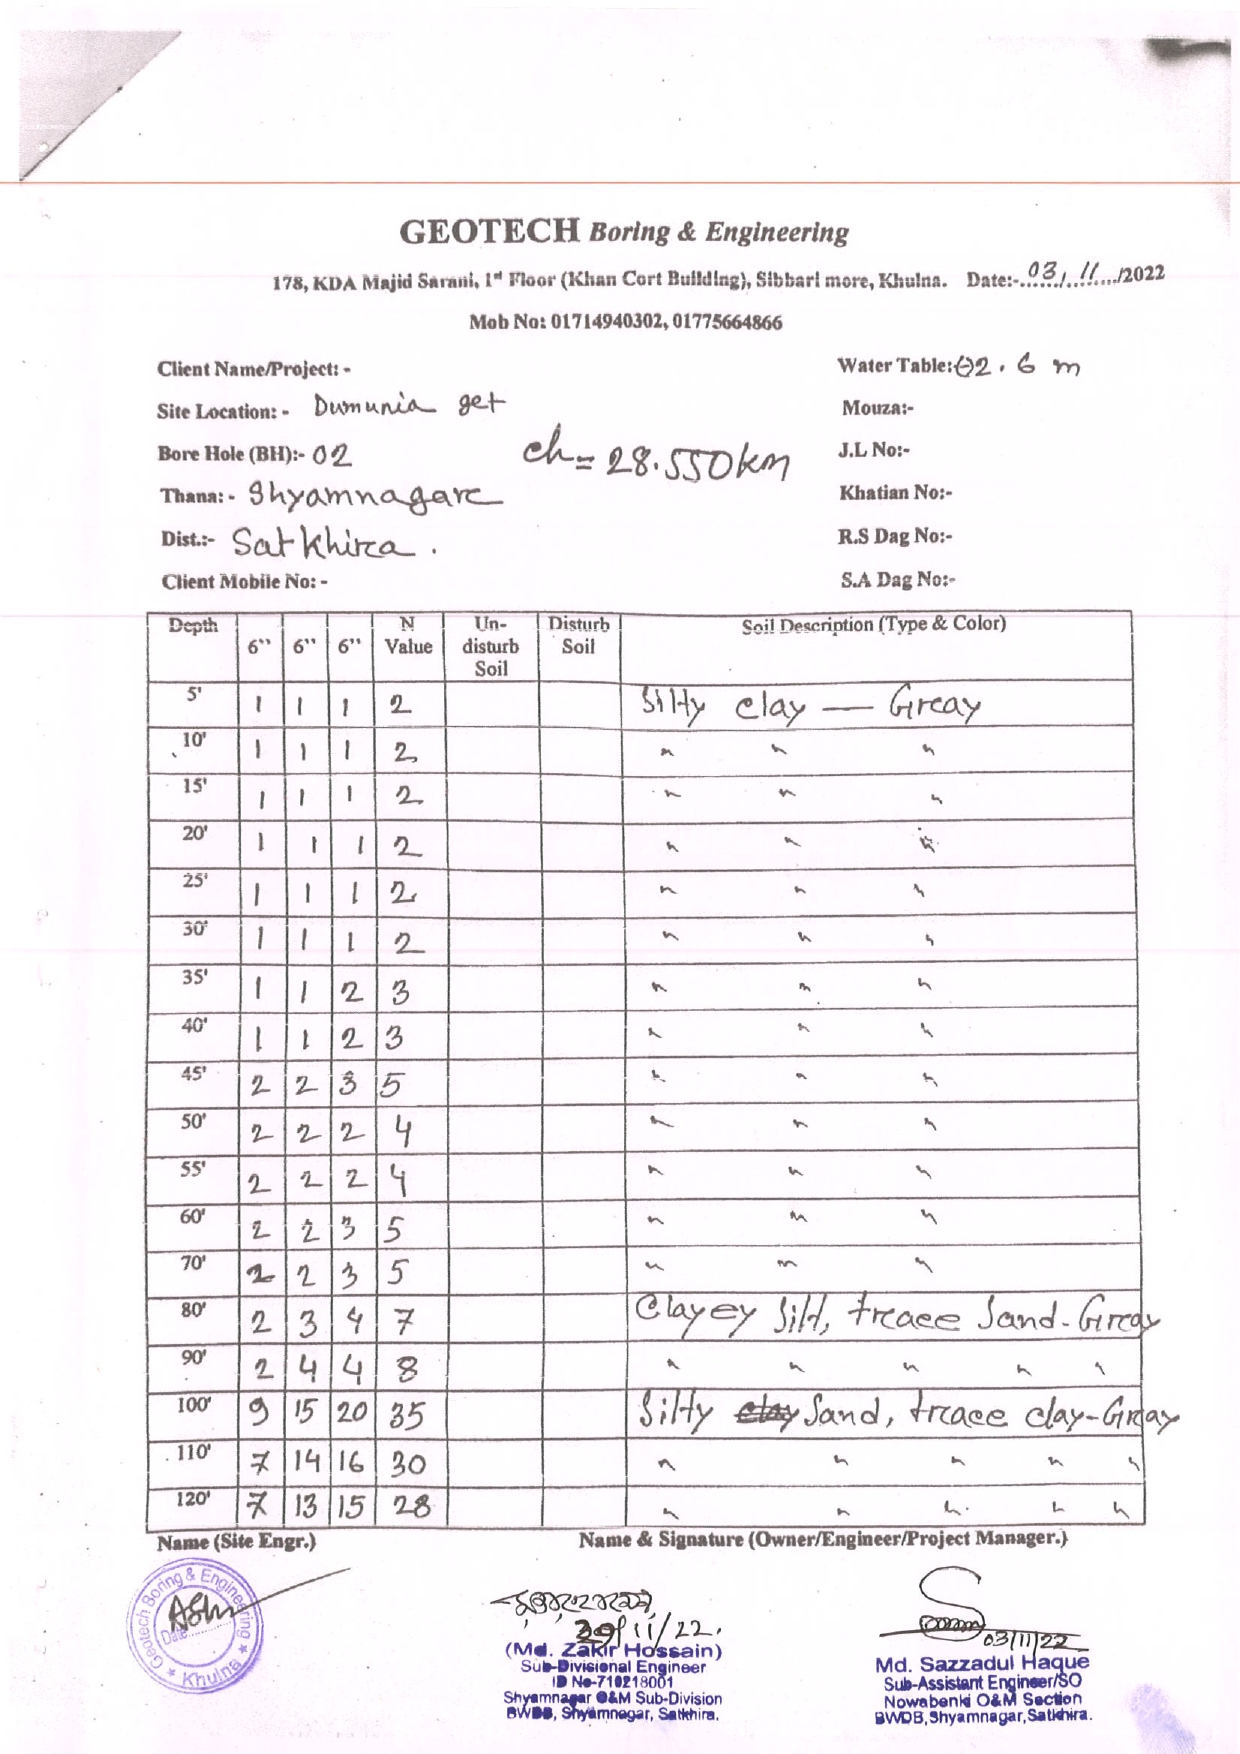 GEOTECH Boring & Engineering
178, KDA Majid Sarani, 1st Floor (Khan Cort Building), Sibbari more, Khulna. Date:- 03/11/2022
Mob No: 01714940302, 01775664866
Client Name/Project: -
Water Table: (-)2.6 m
Site Location: - Dumunia get
Mouza:-
Bore Hole (BH):- 02
ch = 28.550km
J.L No:-
Thana: - Shyamnagar
Khatian No:-
Dist.:- Satkhira.
R.S Dag No:-
Client Mobile No: -
S.A Dag No:-
Depth 6" 6" 6" N Value Un-disturb Soil Disturb Soil Soil Description (Type & Color)
5' 1 1 1 2 Silty clay — Gray
10' 1 1 1 2 " " "
15' 1 1 1 2 " " "
20' 1 1 1 2 " " "
25' 1 1 1 2 " " "
30' 1 1 1 2 " " "
35' 1 1 2 3 " " "
40' 1 1 2 3 " " "
45' 2 2 3 5 " " "
50' 2 2 2 4 " " "
55' 2 2 2 4 " " "
60' 2 2 3 5 " " "
70' 2 2 3 5 " " "
80' 2 3 4 7 Clayey Silt, trace Sand - Gray
90' 2 4 4 8 " " " " "
100' 9 15 20 35 Silty clay Sand, trace clay - Gray
110' 7 14 16 30 " " " " "
120' 7 13 15 28 " " " " "
Name (Site Engr.)
Name & Signature (Owner/Engineer/Project Manager.)
Geotech Boring & Engineering
Date
Khulna
/11/22.
(Md. Zakir Hossain)
Sub-Divisional Engineer
ID No-710218001
Shyamnagar O&M Sub-Division
BWDB, Shyamnagar, Satkhira.
03/11/22
Md. Sazzadul Haque
Sub-Assistant Engineer/SO
Nowabenki O&M Section
BWDB, Shyamnagar, Satkhira.